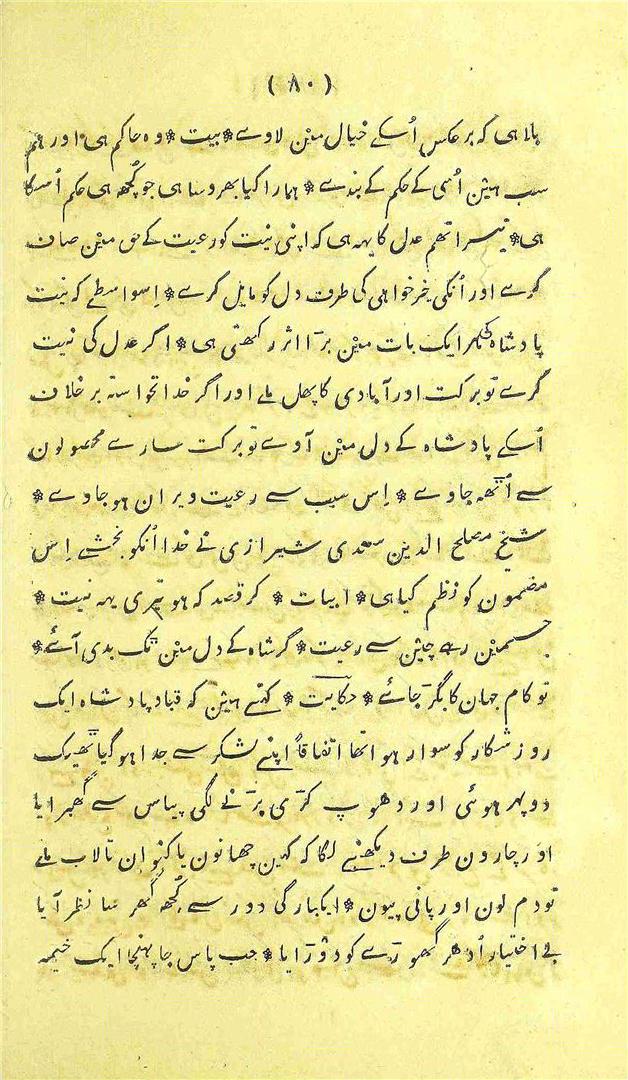 ( ۸۰ )
پالا ہی کہ برعکس اُسکے خیال مین لاوے * بیت * وہ حاکم ہی اور ہم
سب ہین اُسی کے حکم کے بندے * ہمارا کیا بھروسا ہی جو کُچھہ ہی حکم اُسکا
ہی * تیسرا تھم عدل کا یہہ ہی کہ اپنی نیت کو رعیت کے حق مین صاف
کرے اور اُنکی خیرخواہی کی طرف دل کو مایل کرے * اِسواسطے کہ نیت
پادشاہ کی ہر ایک بات مین برّا اثر رکھتی ہی * اگر عدل کی نیت
کرے تو برکت اور آبادی کا پھل ملے اور اگر خدانخواستہ برخلاف
اُسکے پادشاہ کے دل مین آوے تو برکت سارے محصولون
سے اُٹھہ جاوے * اِس سبب سے رعیت ویران ہو جاوے *
شیخ مصلح الدین سعدی شیرازی نے خدا اُنکو بخشے اِس
مضمون کو نظم کیا ہی * ابیات * کر قصد کہ ہو تیری یہہ نیت *
جسمین رہے چین سے رعیت * گر شاہ کے دل مین تک بدی آئے *
تو کام جہان کا بگر جائے * حکایت * کہتے ہین کہ قباد پادشاہ ایک
روز شکار کو سوار ہوا تھا اتفاقاً اپنے لشکر سے جدا ہو گیا تھیک
دوپہر ہوئی اور دھوپ کرّی پرّنے لگی پیاس سے گھبرایا
اور چارون طرف دیکھنے لگا کہ کہین چھانون یا کنوان تالاب ملے
تو دم لون اور پانی پیون * ایکبارگی دور سے کُچھہ گھر سا نظر آیا
بے اختیار اُدھر گھورّے کو دورّایا * جب پاس جا پہنچا ایک خیمہ